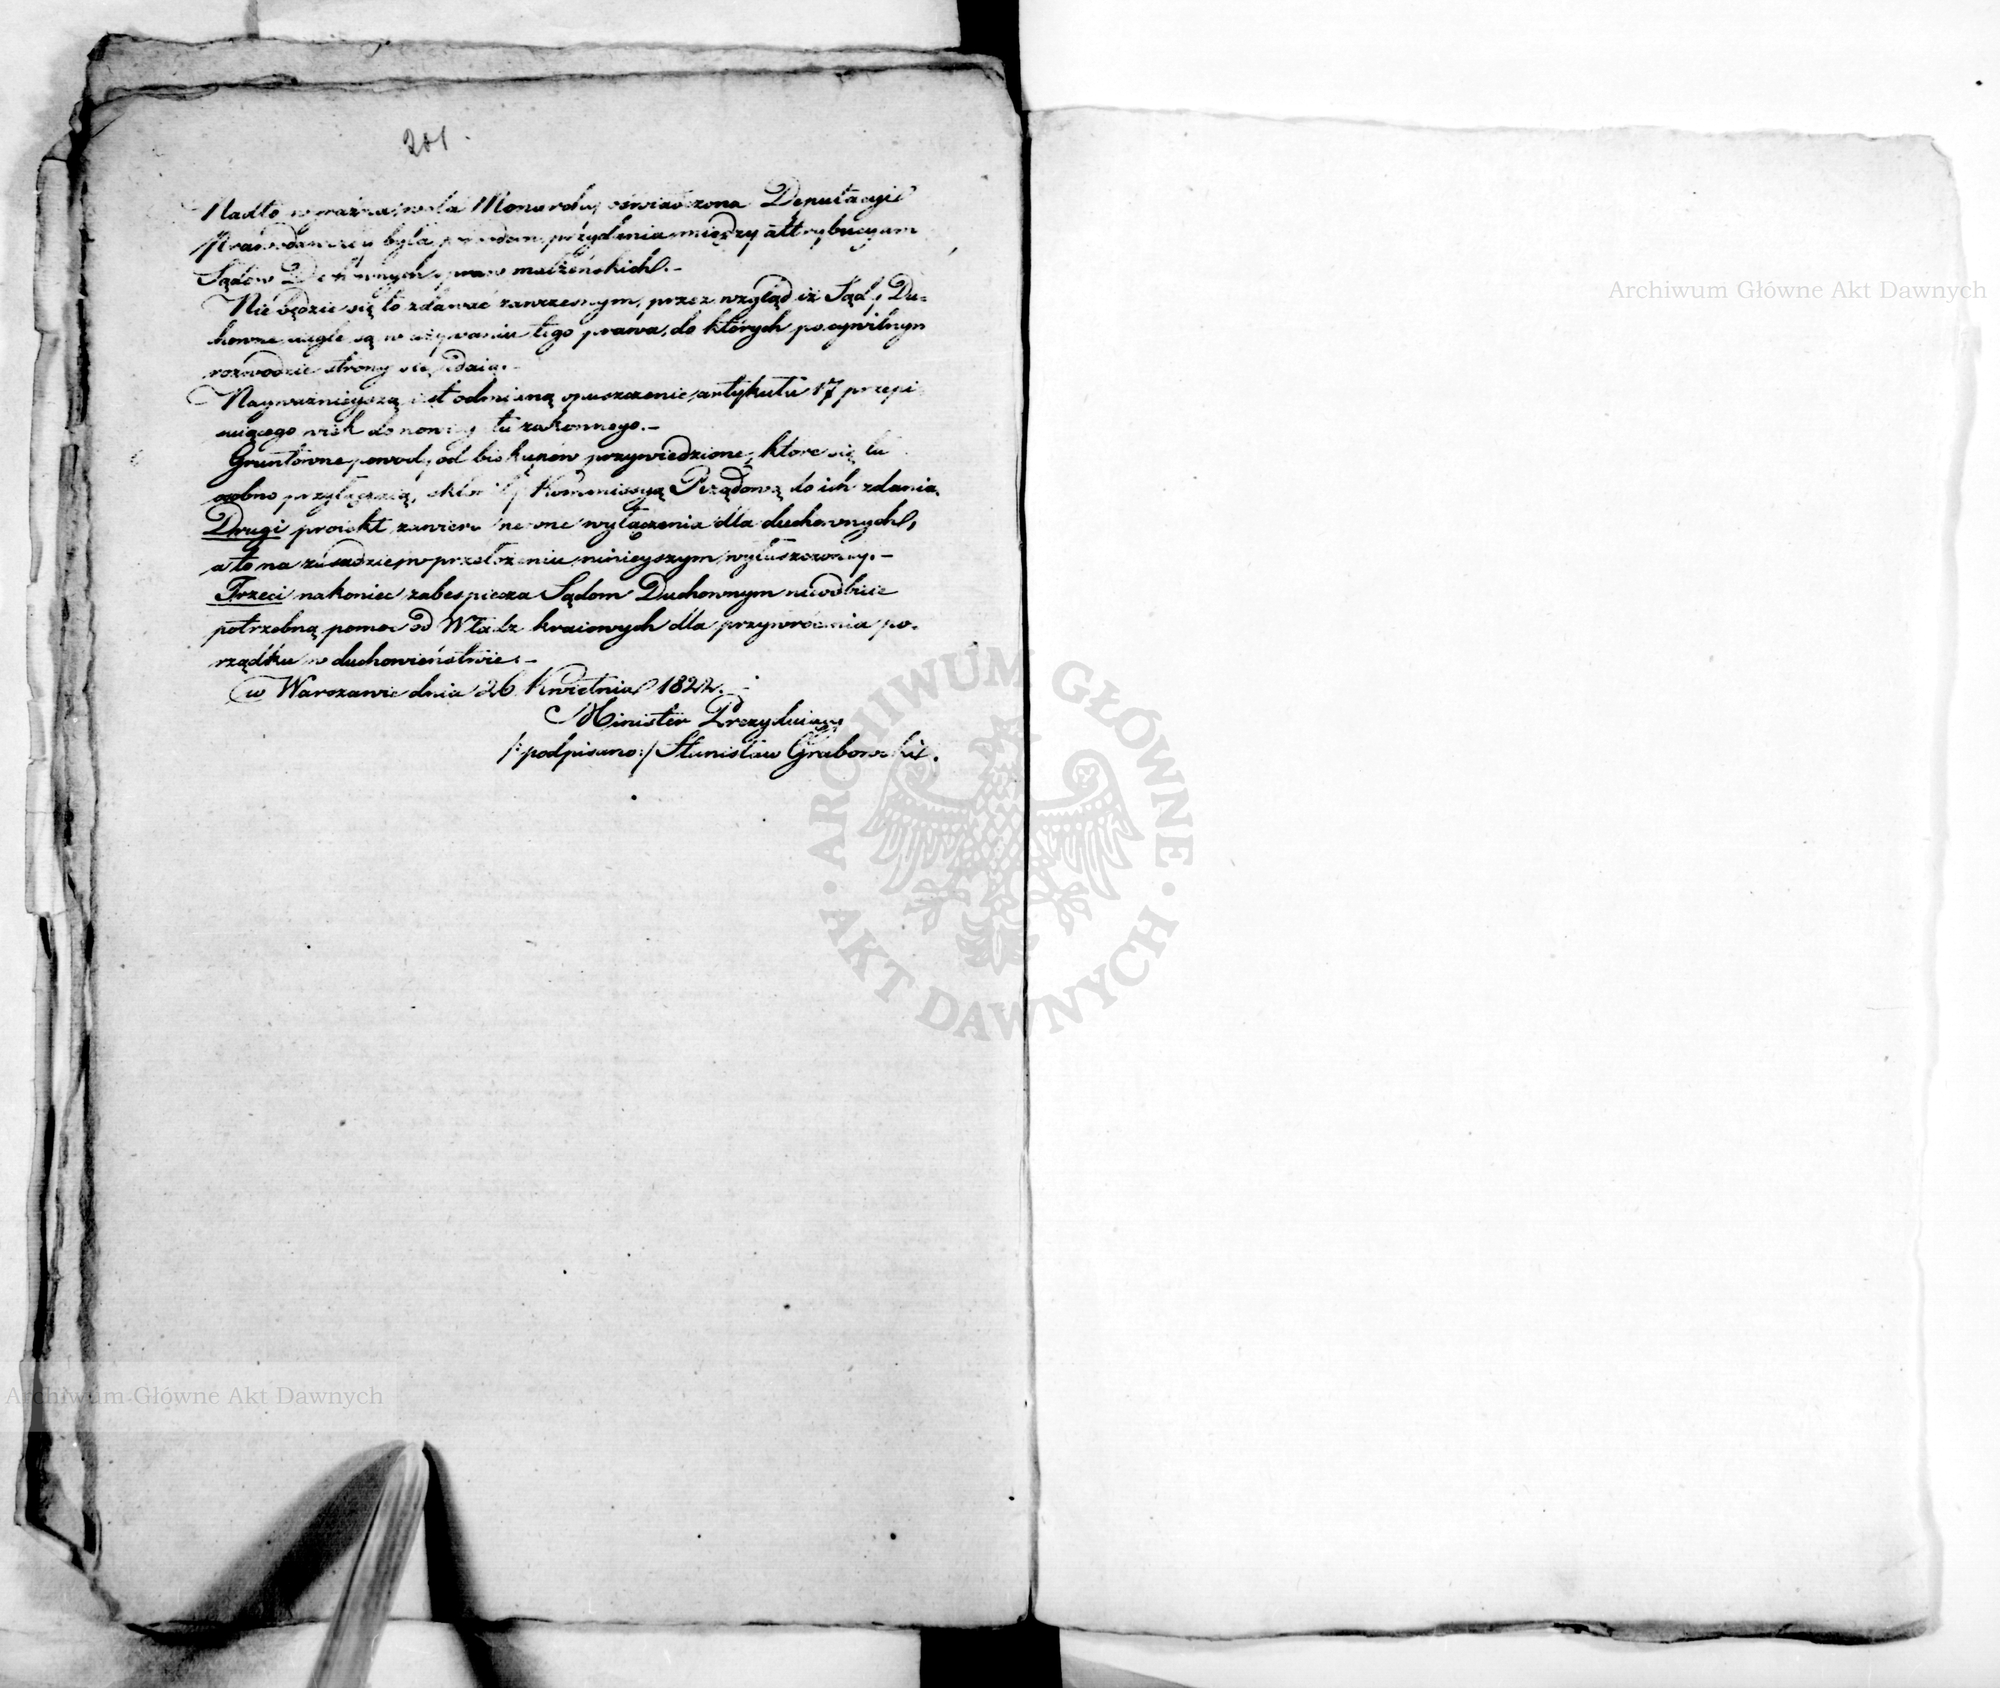 201.
Nadto wyraźna wola Monarchy oświadczona Deputacyi
Prawodawczey była powodem przydania między attrybucyam
Sądów Duchownych spraw małżeńskich.-
Nie będzie się to zdawać zawczesnym, przez wzgląd iż Sądy Du=
howne ciągle są w używaniu tego prawa, do których po cywilnym
rozwodzie strony się udaią.-
Nayważnieyszą iest odmianą opuszczenie artykułu 17 przepi
suiącego wiek do nowicyatu zakonnego.-
Gruntowne powody od biskupów przywiedzione, ktore się tu
osobno przyłączaią, skłoniły Kommissyą Rządową do ich zdania.
Drugi proiekt zawiera pewne wyłączenia dla duchownych,
a to na zasadzie w przełożeniu ninieyszym wyłuszczoney.-
Trzeci nakoniec zabespiecza Sądom Duchownym nieodbicie
potrzebną pomoc od Władz kraiowych dla przywrócenia po=
rządku w duchowieństwie.-
w Warszawie dnia 26 Kwietnia 1822.-
Minister Prezyduiący
/:podpisano:/ Stanisław Grabowski.
Archiwum Główne Akt Dawnych
ARCHIWUM GŁÓWNE · AKT DAWNYCH ·
Archiwum Główne Akt Dawnych